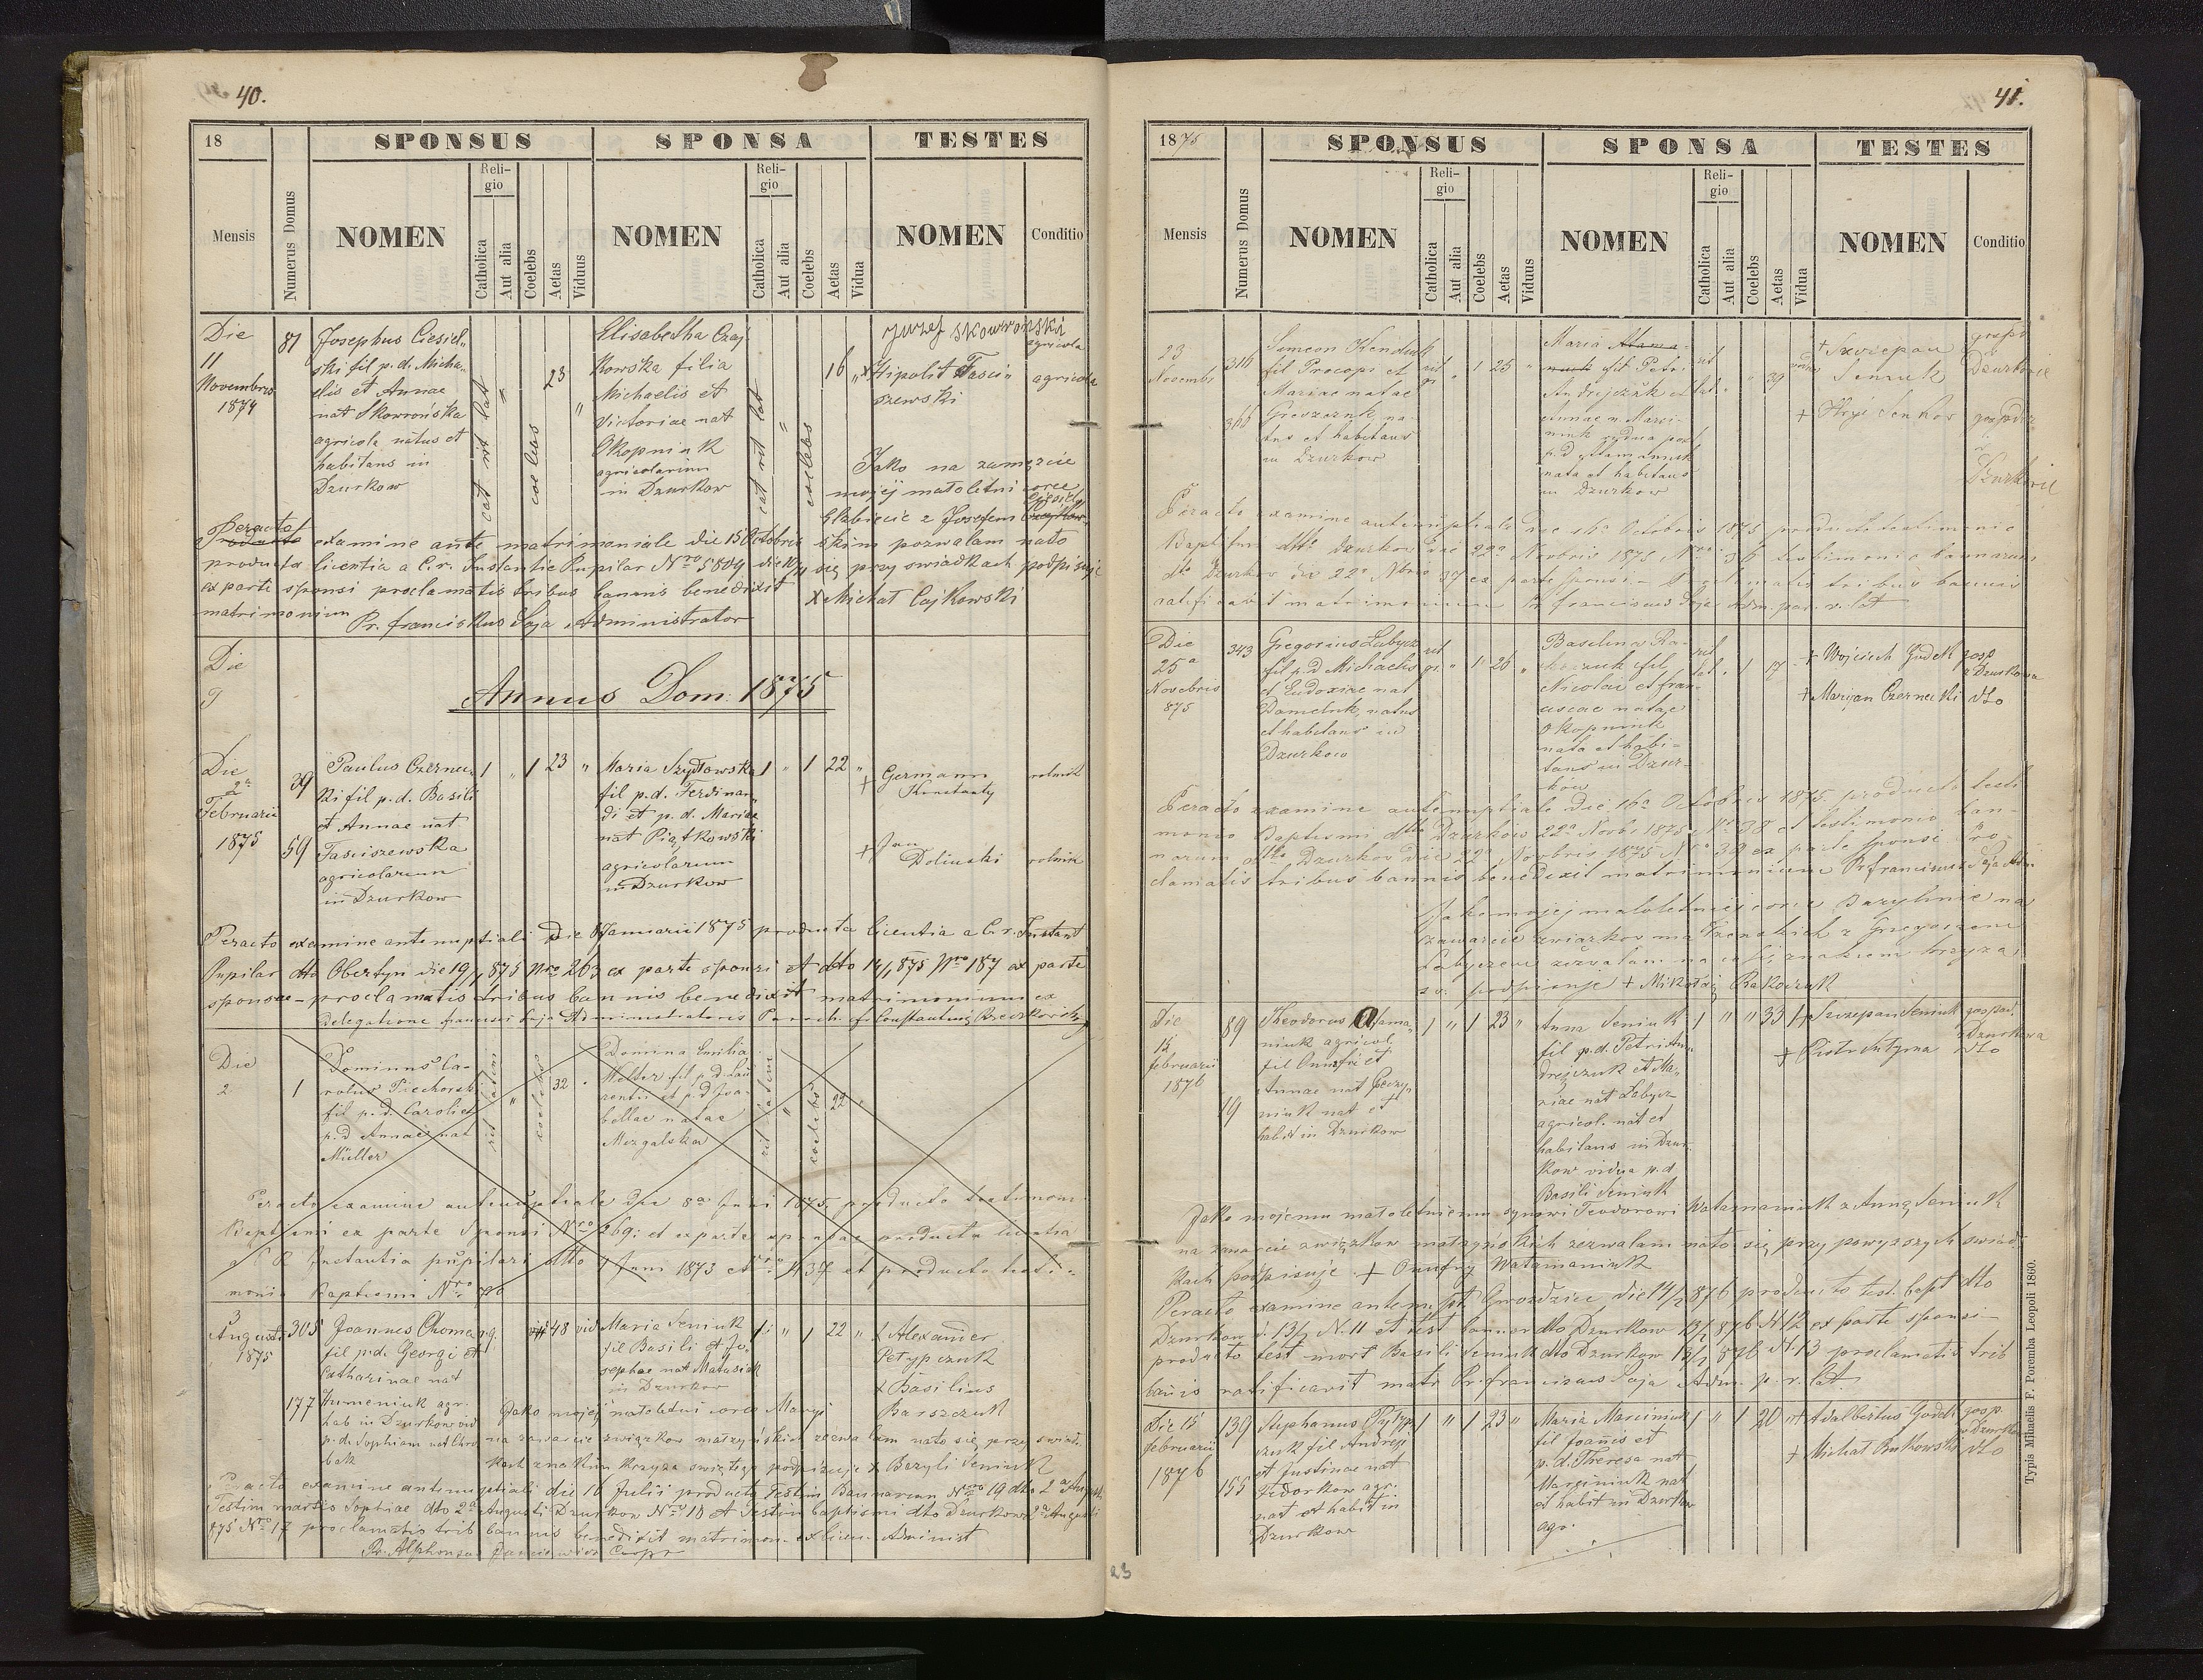 40.
18
SPONSUS
SPONSA
TESTES
Mensis
Numerus Domus
NOMEN
Religio
Catholica
Aut alia
Coelebs
Aetas
Viduus
NOMEN
Religio
Catholica
Aut alia
Coelebs
Aetas
Vidua
NOMEN
Conditio
Die
11
Novembris
1874
81
Josephus Ciesiel„
ski fil p.d. Micha„
elis et Annae
nat Skowrońska
agricola natus et
habitans in
Dzurkow
cat rit lat
coelebs
23
Elisabetha Czaj
kowska filia
Michaelis et
Victoriae nat
Okopniuk
agricolarum
in Dzurkow
cat rit lat
coelebs
16
Juzef Skowroński
agricola
x Hipolit Fasci„
szewski
agricola
Jako na zamęzcie
mojéj małoletni corce
Elzbiecie z Josefem
skim pozwalam nato
się przy swiadkach podpisuję
X Michał Cajkowski
Peracto
examine ante matrimoniale die 15 Octobris
producta licentia a C. r. Instantie Pupilar Nro 5804
ex parte sponsi proclamatis tribus bannis benedixit
matrimonium
Pr. Franciskus Soja Administrator
Die
Annus Dom. 1875
Die
2a
Februarii
1875
39
59
Paulus Czernec„
ki fil p.d. Basili
et Annae nat
Fasciszewska
agricolarum
in Dzurkow
1 „ 1 23 „
Maria Szydłowska
fil p.d. Ferdinan„
di et p.d. Mariae
nat Piątkowski
agricolarum
in Dzurkow
1 „ 1 22 „
+ Germann
Konstanty
rolnik
+ Jan
Doliński
rolnik
Peracto examine antenuptiali Die Januarii 1875 producta licentia a C. r. Instant
Pupilar dto Obertyn die 19/1 875 Nro 263 ex parte sponsi et dto 14/1 875 Nro 187 ex parte
sponsae – proclamatis tribus bannis benedixit matrimonium ex
Delegatione Francisci Soja Administratoris
Die
2
1
Dominus Ca-
rolus Piechorski
fil p.d. Caroli et
p.d Annae nat
Müller
rit latini
coelebs
32
Domina Emilia
Melzer fil p.d Lau
rentii et p.d Isa-
bellae natae
Mezgalska
rit latini
coelebs
22
Peracto examine antenuptiale die 8a Juni 1875, producto testimoni
Baptismi ex parte Sponsi Nro 269; et ex parte sponsae producta licentia
a C R Instantia pupilari dtto 7 Juni 1873 et Nro 1437 et producto testi-
monio Baptismi Nro
3
Augusti
1875
305
177
Joannes Choma
fil p.d. Georgi et
Catharinae nat
Humeniuk agr.
hab in Dzurkow vid
p.d. Sophiam nat
r.g.
48 vid
Maria Seniuk
fil Basili et Jo„
sephae nat Matusiak
in Dzurkow
1 „ 1 22 „
x Alexander
Petypczuk
x Basilius
Barszczuk
Jako mojej matoletni corce Maryi
na zawarcie związkow małzyńskich zezwalam nato się przy swiad„
kach znakim krzyza swiętego podpisuje x Bazyli Seniuk
Peracto examine antenuptiali die 16 Julii producto Testim Bannorum Nro 19 dto 2a Augusti
Testim mortis Sophiae dto 2a Augusti Dzurkow Nro 18 et Testim baptismi dto Dzurkow 2a Augusti
875 Nro 17 proclamatis trib bannis benedixit matrimon. ex licen. Administ
Pr. Alphonsus
41.
1875
SPONSUS
SPONSA
TESTES
Mensis
Numerus Domus
NOMEN
Religio
Catholica
Aut alia
Coelebs
Aetas
Viduus
NOMEN
Religio
Catholica
Aut alia
Coelebs
Aetas
Vidua
NOMEN
Conditio
23
Novembr
316
366
Simeon Kendiuk
fil Procopi et
Mariae natae
Greszczuk na-
tus et habitans
in Dzurkow
rit
gr
„ 1 25 „
Maria Atama-
niuk fil Petri
Andrejczuk et
Annae n. Marci-
niuk vidua post
p.d Atamaniuk
nata et habitans
in Dzurkow
rit
lat.
„ 39
vidua
+ Szczepan
Seniuk
gospd
z
Dzurkowie
+ Hryc Senkov
gospodz
z
Dzurkowie
Peracto examine antenuptiale die 16a Octobris 1875 producto testimonio
Baptismi dtto Dzurkow die 22a Novbris 1875 Nro 36 testimonio bannorum
dto Dzurkow die 22a Nbris 37 ex parte sponsi – proclamatis tribus bannis
ratificavit matrimonium Pr Franciscus Soja Adm. par. r. lat
Die
25a
Novebris
875
343
Gregorius Labycz
fil p.d Michaelis
et Eudoxiae nat
Danieluk natus
et habitans in
Dzurkow
rit
gr.
„ 1 26 „
Baselina Ra-
koczuk fil
Nicolai et Fran-
ciscae natae
Okopniuk
nata et habi-
tans in Dzur-
kow
rit
lat.
1 17
+ Wojciech Gudel
gosp
z Dzurkowa
+ Maryan Czernecki
dto
Peracto examine antenuptiale die 16a Octobris 1875. producto testi
monio Baptismi dtto Dzurkow 22a Novbr 1875 Nro 38 et testimonio ban-
norum dtto Dzurkow die 22a Novbris 1875 Nro 39 ex parte sponsi Pro-
clamatis tribus bannis benedixit matrimonium Pr Franciscus Soja Adm
Jako mojej małoletniej corce Bazylinie na
zawarcie związkow małżenskich z Gregorzem
Labyczem zezwalam na co się znakiem krzyza
sw. podpisuje + Mikołaj Rakoczuk
Die
15
februarii
1876
89
19
Theodorus Atama„
niuk agricol.
fil Onufri et
Annae nat
niuk nat et
habit in Dzurkow
1 „ 1 23 „
Anna Seniuk
fil p.d. Petri An„
drejczuk et Ma„
riae nat Labycz
agricol. nat et
habitans in Dzur„
kow vidua p.d
Basili Seniuk
1 „ „ 33 1
+ Szczepan Seniuk
gospod.
z Dzurkowa
+ Piotr Antyma
dto
Jako mojemu małoletniemu synowi Teodorowi Watamaniuk z Anną Seniuk
na zawarcie związkow małzyńskich zezwalam nato się przy powyzszych swiad„
kach podpisuje + Onufry Watamaniuk
Peracto examine antenupt. Gwozdziec die 14/2 876 producto test. bapt dto
Dzurkow d. 13/2 N. 11 et test bannor dto Dzurkow 13/2 876 N 12 ex parte sponsi –
producto test mort Basili Seniuk dto Dzurkow 13/2 876 N. 13 proclamatis trib
banis ratificavit matr Pr. Franciscus Soja Adm. p. r. lat
Die 15
februarii
1876
139
155
Stephanus Pytyp„
czuk fil Andreji
et Justinae nat
Fedorkow agr.
nat et habit in
Dzurkow
1 „ 1 23 „
Maria Marciniuk
fil Joanis et
p.d. Theresa nat
Marciniuk nat
et habit in Dzurkow
agr.
1 „ 1 20 „
+ Adalbertus Gudel
gosp
z Dzurkow
+ Michał Bukowski
dto
Typis Mihaelis F. Poremba Leopoli 1860.
23